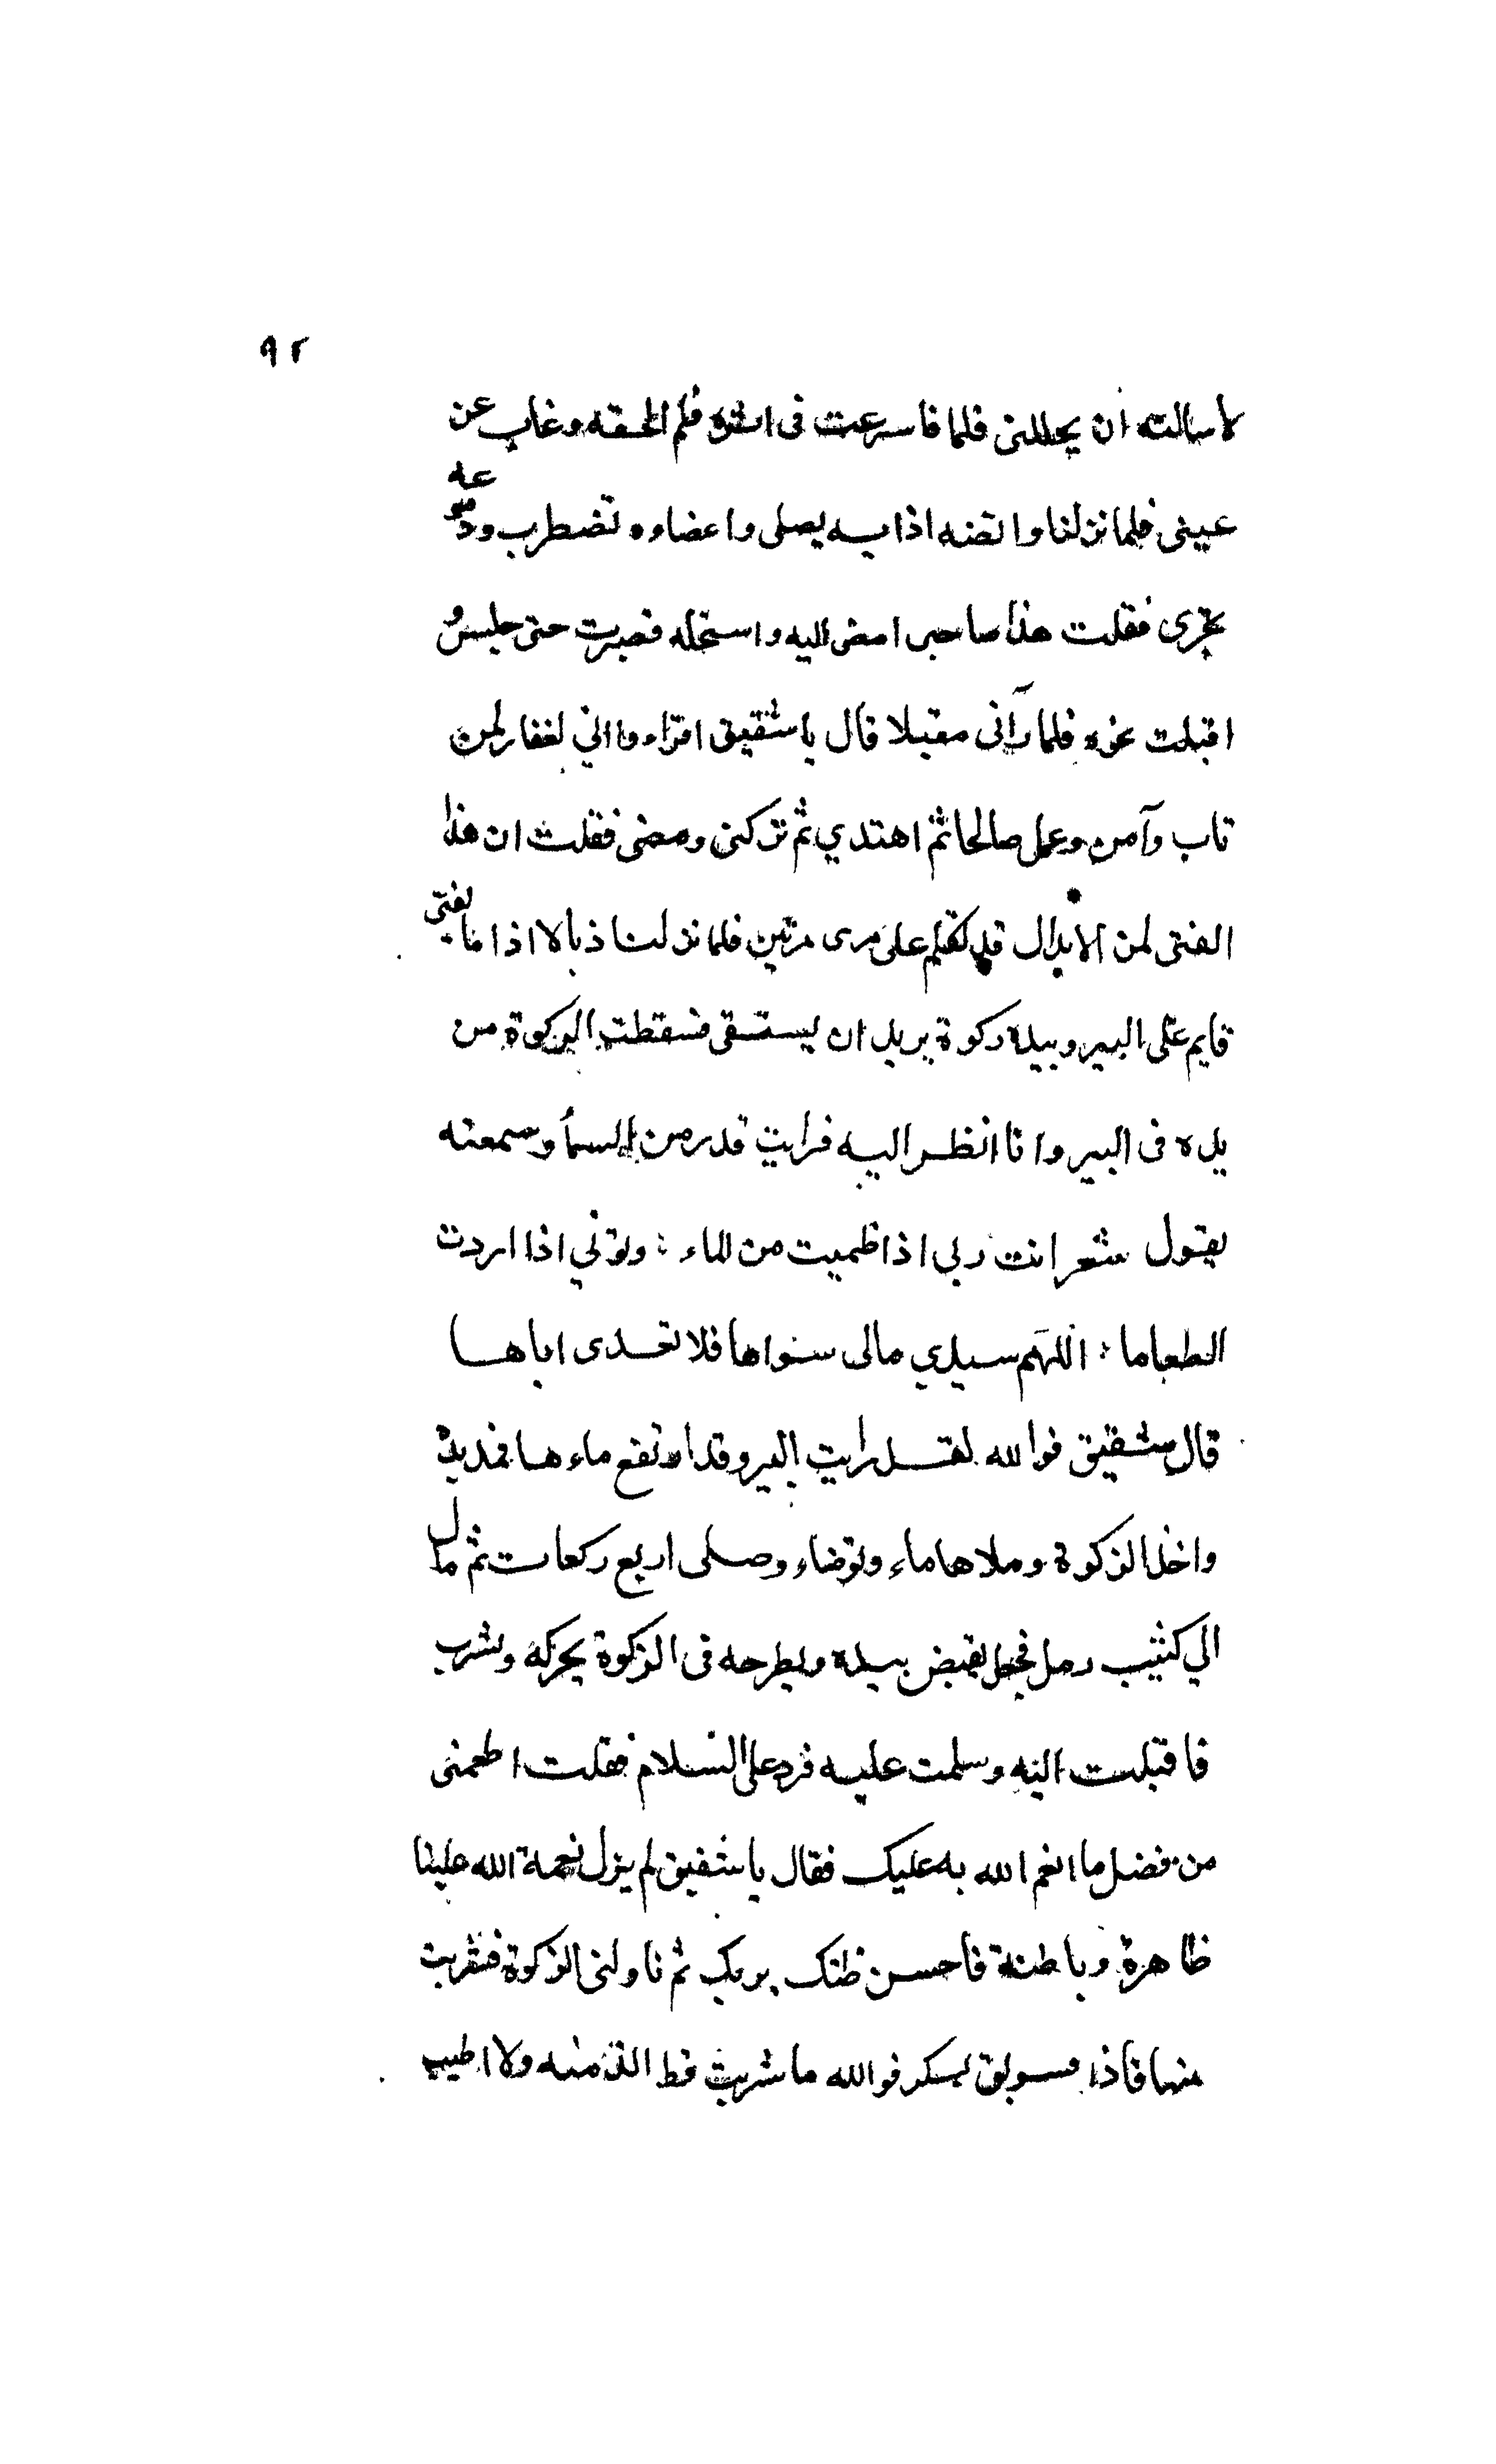 ٩٢
لاسالنه ان يحللنى فلما فاسرعت فى اثره فلم الحقه وغاب عن
عينى فلما نزلنا واقضه اذا به يصلى واعضاوه تضطرب ودموعه
تجرى فقلت هذا صاحبى امض اليه واستحله فصبرت حتى جلس و
اقبلت نحوه فلما رآنى مقبلا قال يا شقيق اقراء واني لغفار لمن
تاب وآمن وعمل صالحا ثم اهتدي ثم تركنى ومضى فقلت ان هذا
الفتى لمن الابدال قد تكلم على سرى مرتين فلما نزلنا ذبالا اذا بالفتى
قايم على البير وبيده ركوة يريد ان يستسقى فسقطت الركوة من
يده فى البير وانا انظر اليه فرايت قد رمن السمأ وسمعته
يقول شعر انت ربى اذا ظميت من الماء ؛ وقوتي اذا اردت
الطعاما ؛ اللهم سيدي مالى سواها فلا تعدى اياها
قال شقيق فوالله لقد رايت البير وقد ارتفع ماءها فمد يده
واخذ الركوة وملاها ماء وتوضاء وصلى اربع ركعات ثم مال
الي كثيب رمل فجعل يقبض بيده ويطرحه فى الركوة يحركه ويشرب
فاقبلت اليه وسلمت عليه فرد على السلام فقلت اطعمنى
من فضل ما انعم الله به عليك فقال يا شقيق لم يزل نعمة الله علينا
ظاهرة وباطنة فاحسن ظنك بربك ثم ناولنى الركوة فشربت
منها فاذا سويق لسكر فوالله ما شربت قط الذ منه ولا اطيب